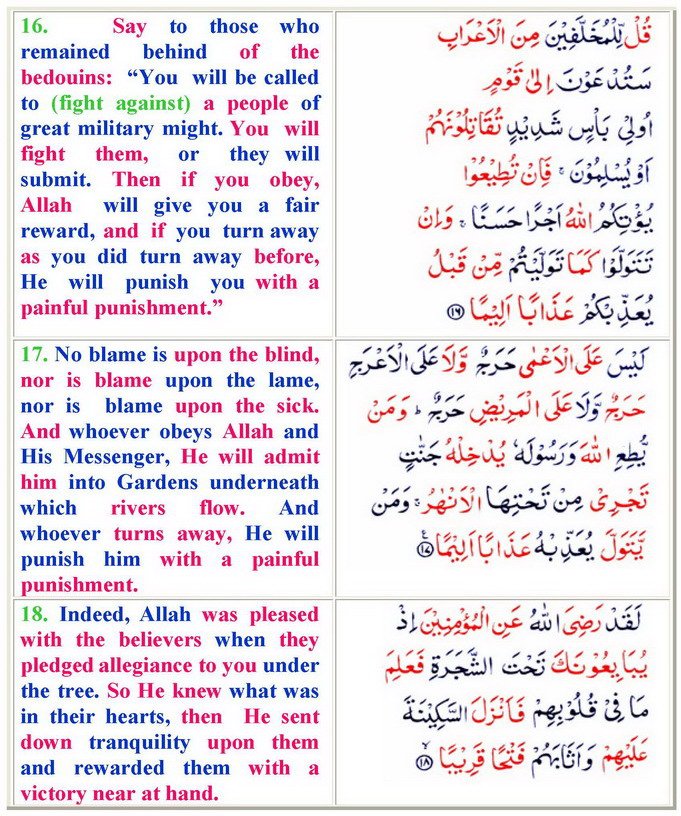 16. Say to those who
remained behind of the
bedouins: “You will be called
to (fight against) a people of
great military might. You will
fight them, or they will
submit. Then if you obey,
Allah will give you a fair
reward, and if you turn away
as you did turn away before,
He will punish you with a
painful punishment.”
قُلْ لِّلْمُخَلَّفِيْنَ مِنَ الْاَعْرَابِ
سَتُدْعَوْنَ اِلٰى قَوْمٍ
اُولِيْ بَاْسٍ شَدِيْدٍ تُقَاتِلُوْنَهُمْ
اَوْ يُسْلِمُوْنَ ۚ فَاِنْ تُطِيْعُوْا
يُؤْتِكُمُ اللّٰهُ اَجْرًا حَسَنًا ۚ وَاِنْ
تَتَوَلَّوْا كَمَا تَوَلَّيْتُمْ مِّنْ قَبْلُ
يُعَذِّبْكُمْ عَذَابًا اَلِيْمًا ﴿۱۶﴾
17. No blame is upon the blind,
nor is blame upon the lame,
nor is blame upon the sick.
And whoever obeys Allah and
His Messenger, He will admit
him into Gardens underneath
which rivers flow. And
whoever turns away, He will
punish him with a painful
punishment.
لَيْسَ عَلَى الْاَعْمٰى حَرَجٌ وَّلَا عَلَى الْاَعْرَجِ
حَرَجٌ وَّلَا عَلَى الْمَرِيْضِ حَرَجٌ ؕ وَمَنْ
يُّطِعِ اللّٰهَ وَرَسُوْلَهٗ يُدْخِلْهُ جَنّٰتٍ
تَجْرِيْ مِنْ تَحْتِهَا الْاَنْهٰرُ ۚ وَمَنْ
يَّتَوَلَّ يُعَذِّبْهُ عَذَابًا اَلِيْمًا ﴿۱۷﴾ ع
18. Indeed, Allah was pleased
with the believers when they
pledged allegiance to you under
the tree. So He knew what was
in their hearts, then He sent
down tranquility upon them
and rewarded them with a
victory near at hand.
لَقَدْ رَضِيَ اللّٰهُ عَنِ الْمُؤْمِنِيْنَ اِذْ
يُبَايِعُوْنَكَ تَحْتَ الشَّجَرَةِ فَعَلِمَ
مَا فِيْ قُلُوْبِهِمْ فَاَنْزَلَ السَّكِيْنَةَ
عَلَيْهِمْ وَاَثَابَهُمْ فَتْحًا قَرِيْبًا ﴿۱۸﴾ ۙ